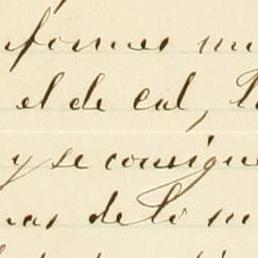 formes mu
el de cal, l
y se consigue
nas de lo m